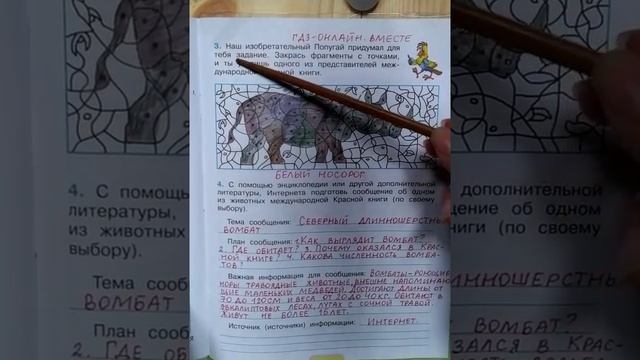 ГДЗ-ОНЛАЙН. ВМЕСТЕ
3. Наш изобретательный Попугай придумал для
тебя задание. Закрась фрагменты с точками,
и ты одного из представителей меж-
дународной книги.
БЕЛЫЙ НОСОРОГ
4. С помощью энциклопедии или другой дополнительной
литературы, Интернета подготовь сообщение об одном
из животных международной Красной книги (по своему
выбору).
Тема сообщения: СЕВЕРНЫЙ ДЛИННОШЕРСТНЫЙ
ВОМБАТ
План сообщения: 1. КАК ВЫГЛЯДИТ ВОМБАТ?
2. ГДЕ ОБИТАЕТ? 3. ПОЧЕМУ ОКАЗАЛСЯ В КРАС-
НОЙ КНИГЕ? 4. КАКОВА ЧИСЛЕННОСТЬ ВОМБА-
ТОВ?
Важная информация для сообщения: ВОМБАТЫ-РОЮЩИЕ
НОРЫ ТРАВОЯДНЫЕ ЖИВОТНЫЕ, ВНЕШНЕ НАПОМИНАЮ-
ЩИЕ МАЛЕНЬКИХ МЕДВЕДЕЙ. ДОСТИГАЮТ ДЛИНЫ ОТ
70 ДО 120СМ И ВЕСА ОТ 20 ДО 40 КГ. ОБИТАЮТ В
ЭВКАЛИПТОВЫХ ЛЕСАХ, ЛУГАХ С СОЧНОЙ ТРАВОЙ.
ЖИВУТ НЕ БОЛЕЕ 15 ЛЕТ.
Источник (источники) информации: ИНТЕРНЕТ.
4. С помощью
литературы,
из животных
выбору).
Тема сообщ
ВОМБАТ
План сообщ
2. ГДЕ ОБИ
дополнительной
щение об одном
иги (по своему
ННОШЕРСТН
ВОМБАТ?
АЗАЛСЯ В КРАС